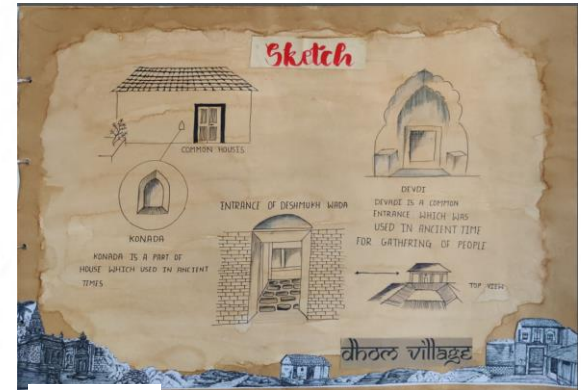 Sketch
COMMON HOUSES
KONADA
KONADA IS A PART OF
HOUSE WHICH USED IN ANCIENT
TIMES
ENTRANCE OF DESHMUKH WADA
DEVDI
DEVADI IS A COMMON
ENTRANCE WHICH WAS
USED IN ANCIENT TIME
FOR GATHERING OF PEOPLE
TOP VIEW
dhom village